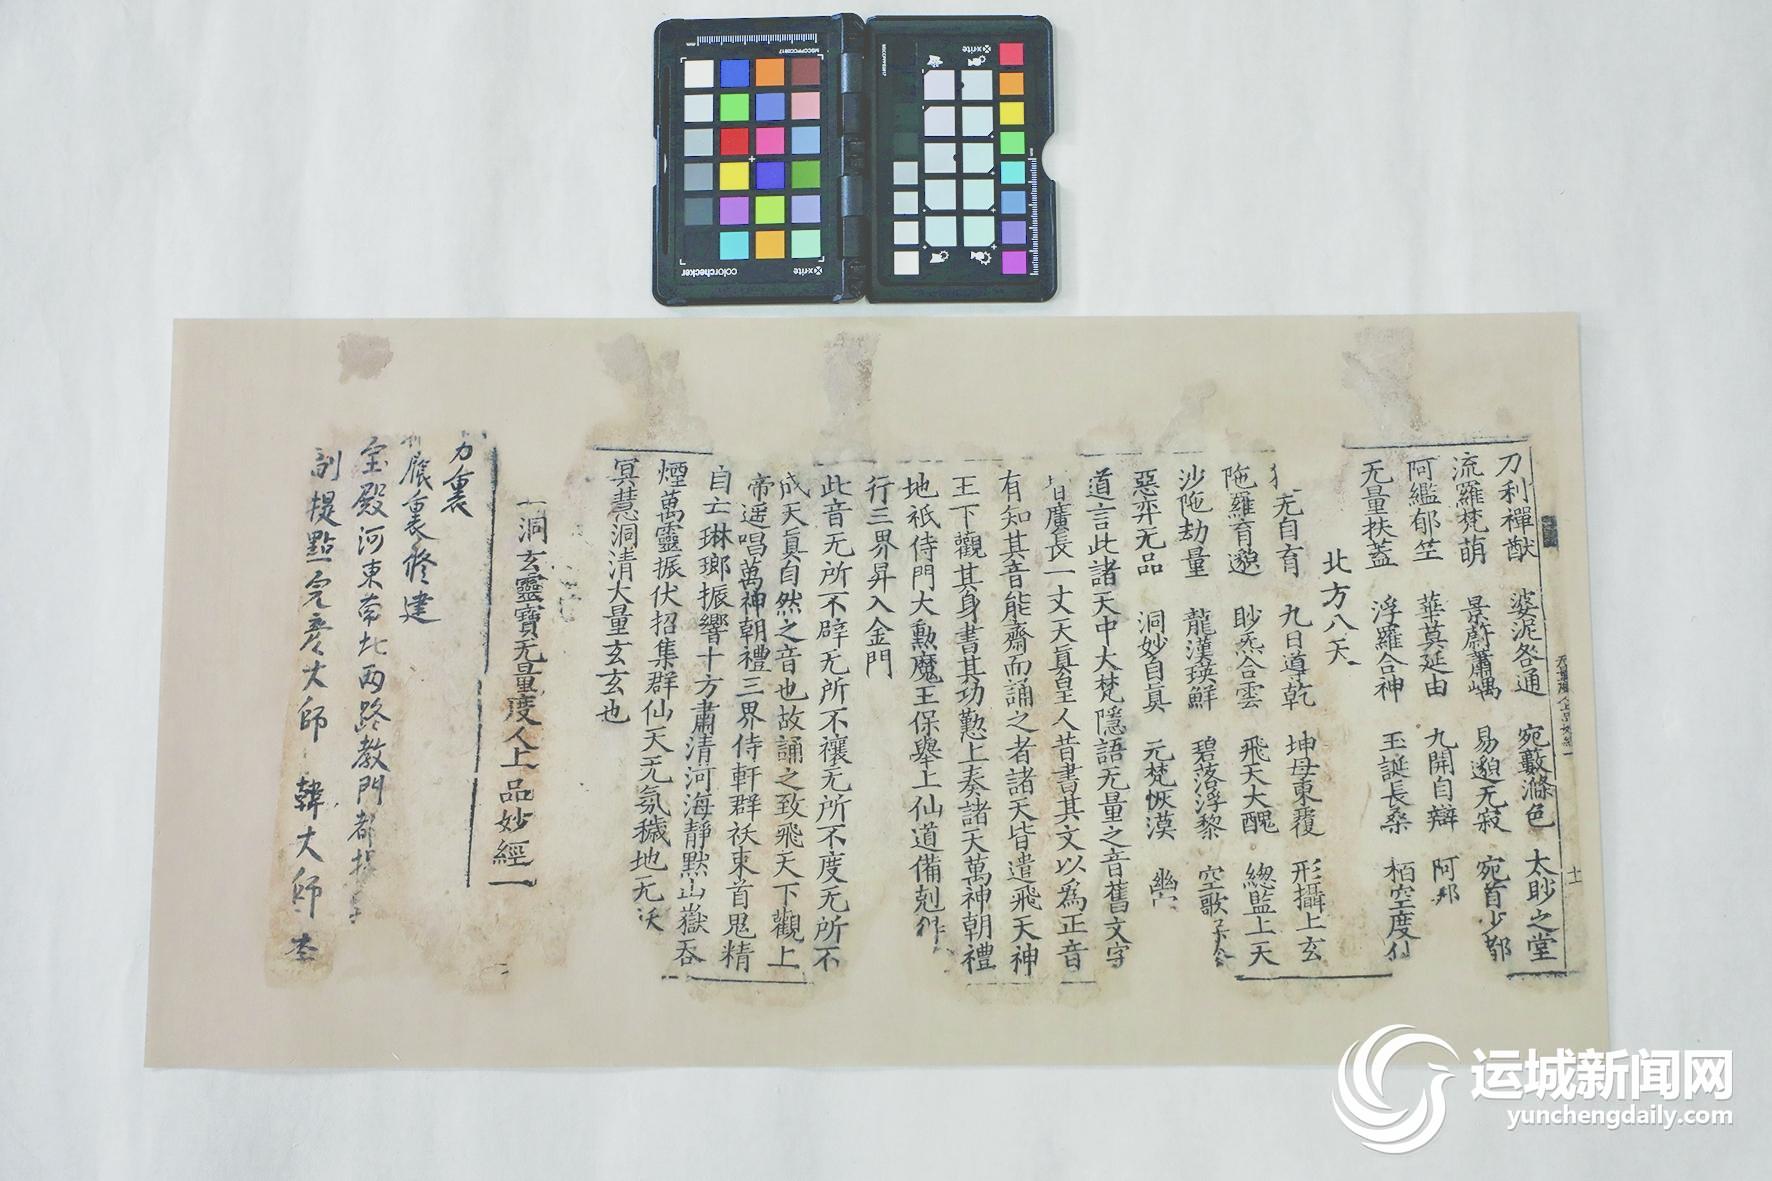 刀利禪猷 婆泥咎通 宛藪滌色 太眇之堂
流羅梵萌 景蔚蕭嵎 易邈无寂 宛首少都
阿縕郁竺 華莫延由 九開自辯 阿那
无量扶蓋 浮羅合神 玉誕長桑 栢空度仙
北方八天
无自育 九日導乾 坤母東覆 形攝上玄
陁羅育邈 眇炁合雲 飛天大醜 總監上天
沙陁劫量 龍漢瑛鮮 碧落浮黎 空歌
惡弈无品 洞妙自眞 元梵恢漠 幽
道言此諸天中大梵隱語无量之音舊文字
皆廣長一丈天眞皇人昔書其文以爲正音
有知其音能齋而誦之者諸天皆遣飛天神
王下觀其身書其功懃上奏諸天萬神朝禮
地祇侍門大勲魔王保舉上仙道備剋
行三界昇入金門
此音无所不辟无所不禳无所不度无所不
成天眞自然之音也故誦之致飛天下觀上
帝遥唱萬神朝禮三界侍軒群祅束首鬼精
自亡琳瑯振響十方肅清河海靜黙山嶽吞
煙萬靈振伏招集群仙天无氛穢地无祅
冥慧洞清大量玄玄也
洞玄靈寶无量度人上品妙經一
重
重修建
宝殿河東南北兩路教門都提
副提點 大師 韓大師 李
xrite
colorchecker
MSCCPPCC0817
xrite
运城新闻网
yunchengdaily.com